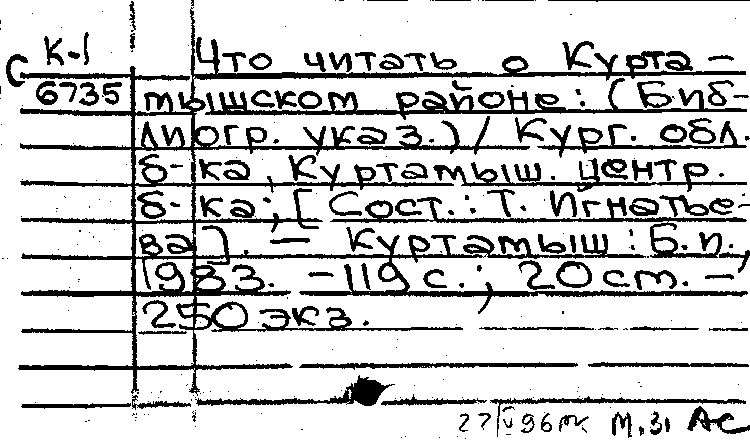 К-1
С
6735
Что читать о Курта-
мышском районе: (Биб-
лиогр. указ.) / Кург. обл.
б-ка, Куртамыш. центр.
б-ка; [Сост.: Т. Игнатье-
ва]. — Куртамыш: Б.и.,
1983. - 119 с.; 20 см. -
250 экз.
27 V 96 М.31 АС